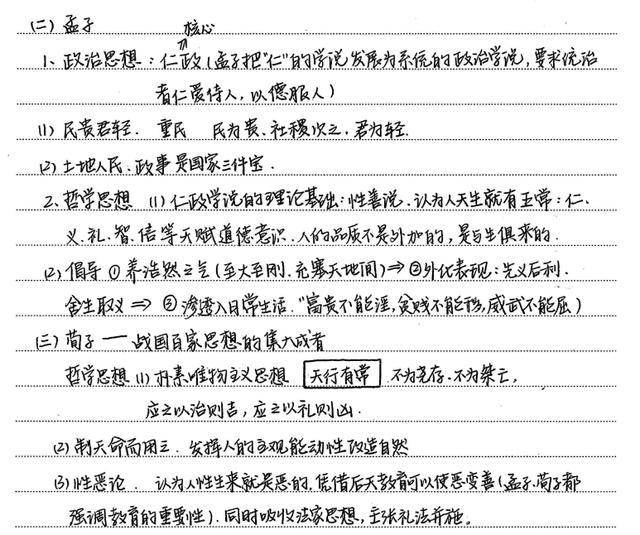 (二) 孟子 核心
1、政治思想:仁政(孟子把“仁”的学说发展为系统的政治学说,要求统治
者仁爱待人,以德服人)
(1) 民贵君轻. 重民 民为贵、社稷次之,君为轻.
(2) 土地人民、政事是国家三件宝.
2、哲学思想 (1) 仁政学说的理论基础:性善说、认为人天生就有五常:仁、
义、礼、智、信等天赋道德意识、人的品质不是外加的,是与生俱来的.
(2) 倡导 ① 养浩然之气(至大至刚、充塞天地间)⇒ ②外化表现:先义后利.
舍生取义 ⇒ ③ 渗透入日常生活.“富贵不能淫,贫贱不能移,威武不能屈)
(三) 荀子 — 战国百家思想的集大成者
哲学思想 (1) 朴素唯物主义思想 天行有常 不为尧存、不为桀亡,
应之以治则吉,应之以礼则凶.
(2) 制天命而用之. 发挥人的主观能动性改造自然
(3) 性恶论. 认为人性生来就是恶的,凭借后天教育可以使恶变善(孟子、荀子都
强调教育的重要性).同时吸收法家思想,主张礼法并施。